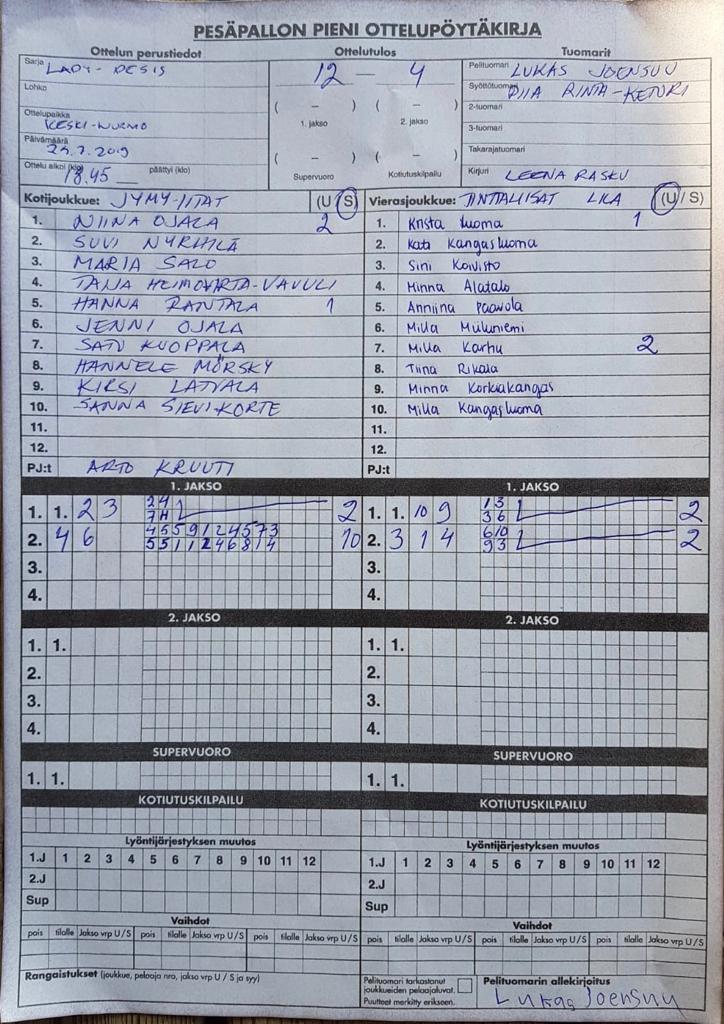 PESÄPALLON PIENI OTTELUPÖYTÄKIRJA
Ottelun perustiedot
Sarja LADY-PESIS
Lohko
Ottelupaikka
KESKI-NURMO
Päivämäärä
Ottelu alkoi (klo) 18.45 päättyi (klo)
Ottelutulos
12 — 4
( – ) ( – )
1. jakso 2. jakso
( – ) ( – )
Supervuoro Kotiutuskilpailu
Tuomarit
Pelituomari LUKAS JOENSUU
Syöttötuomari PIIA RINTA-KETURI
2-tuomari
3-tuomari
Takarajatuomari
Kirjuri LEENA RASKU
Kotijoukkue: JYMY-IITAT (U/S)
1. NIINA OJALA 2
2. SUVI NYRHILÄ
3. MARIA SALO
4. TAIJA HEIMOVIRTA-VAVULI
5. HANNA RANTALA 1
6. JENNI OJALA
7. SATU KUOPPALA
8. HANNELE MÖRSKY
9. KIRSI LATVALA
10. SANNA SIEVI-KORTE
11.
12.
PJ:t ARTO KRUUTI
Vierasjoukkue: LIKA (U/S)
1. Krista Luoma 1
2. Kata Kangasluoma
3. Sini Koivisto
4. Minna Alatalo
5. Anniina Paavola
6. Milla Myllyniemi
7. Milla Karhu 2
8. Tiina Rikala
9. Minna Korkiakangas
10. Milla Kangasluoma
11.
12.
PJ:t
1. JAKSO
1. 1. 2 3 2
2. 4 6 10
3.
4.
1. JAKSO
1. 1. 10 9 13 36 2
2. 3 1 4 6 10 93 2
3.
4.
2. JAKSO
1. 1.
2.
3.
4.
2. JAKSO
1. 1.
2.
3.
4.
SUPERVUORO
1. 1.
SUPERVUORO
1. 1.
KOTIUTUSKILPAILU
KOTIUTUSKILPAILU
Lyöntijärjestyksen muutos
1.J 1 2 3 4 5 6 7 8 9 10 11 12
2.J
Sup
Lyöntijärjestyksen muutos
1.J 1 2 3 4 5 6 7 8 9 10 11 12
2.J
Sup
Vaihdot
pois tilalle Jakso vrp U/S pois tilalle Jakso vrp U/S pois tilalle Jakso vrp U/S
Vaihdot
pois tilalle Jakso vrp U/S pois tilalle Jakso vrp U/S pois tilalle Jakso vrp U/S
Rangaistukset (joukkue, pelaaja nro, jakso vrp U / S ja syy)
Pelituomari tarkastanut
joukkueiden pelaajaluvat.
Puutteet merkitty erikseen.
Pelituomarin allekirjoitus
Lukas Joensuu